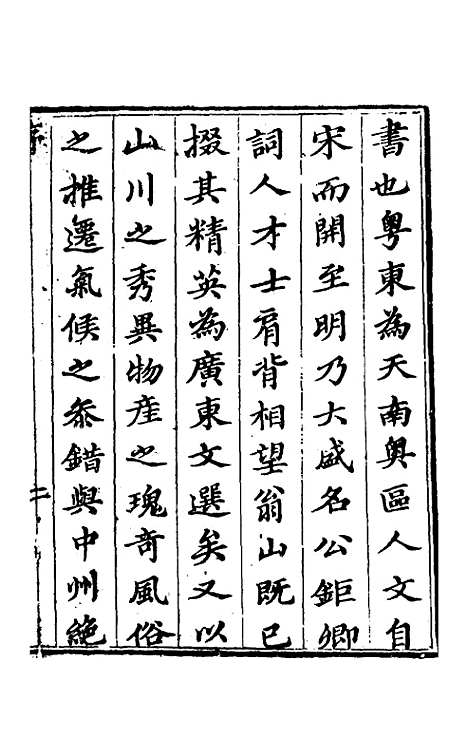 書也粵東為天南奧區人文自
宋而開至明乃大盛名公鉅卿
詞人才士肩背相望翁山既已
掇其精英為廣東文選矣又以
山川之秀異物産之瑰奇風俗
之推遷氣候之叅錯與中州絶
序
二